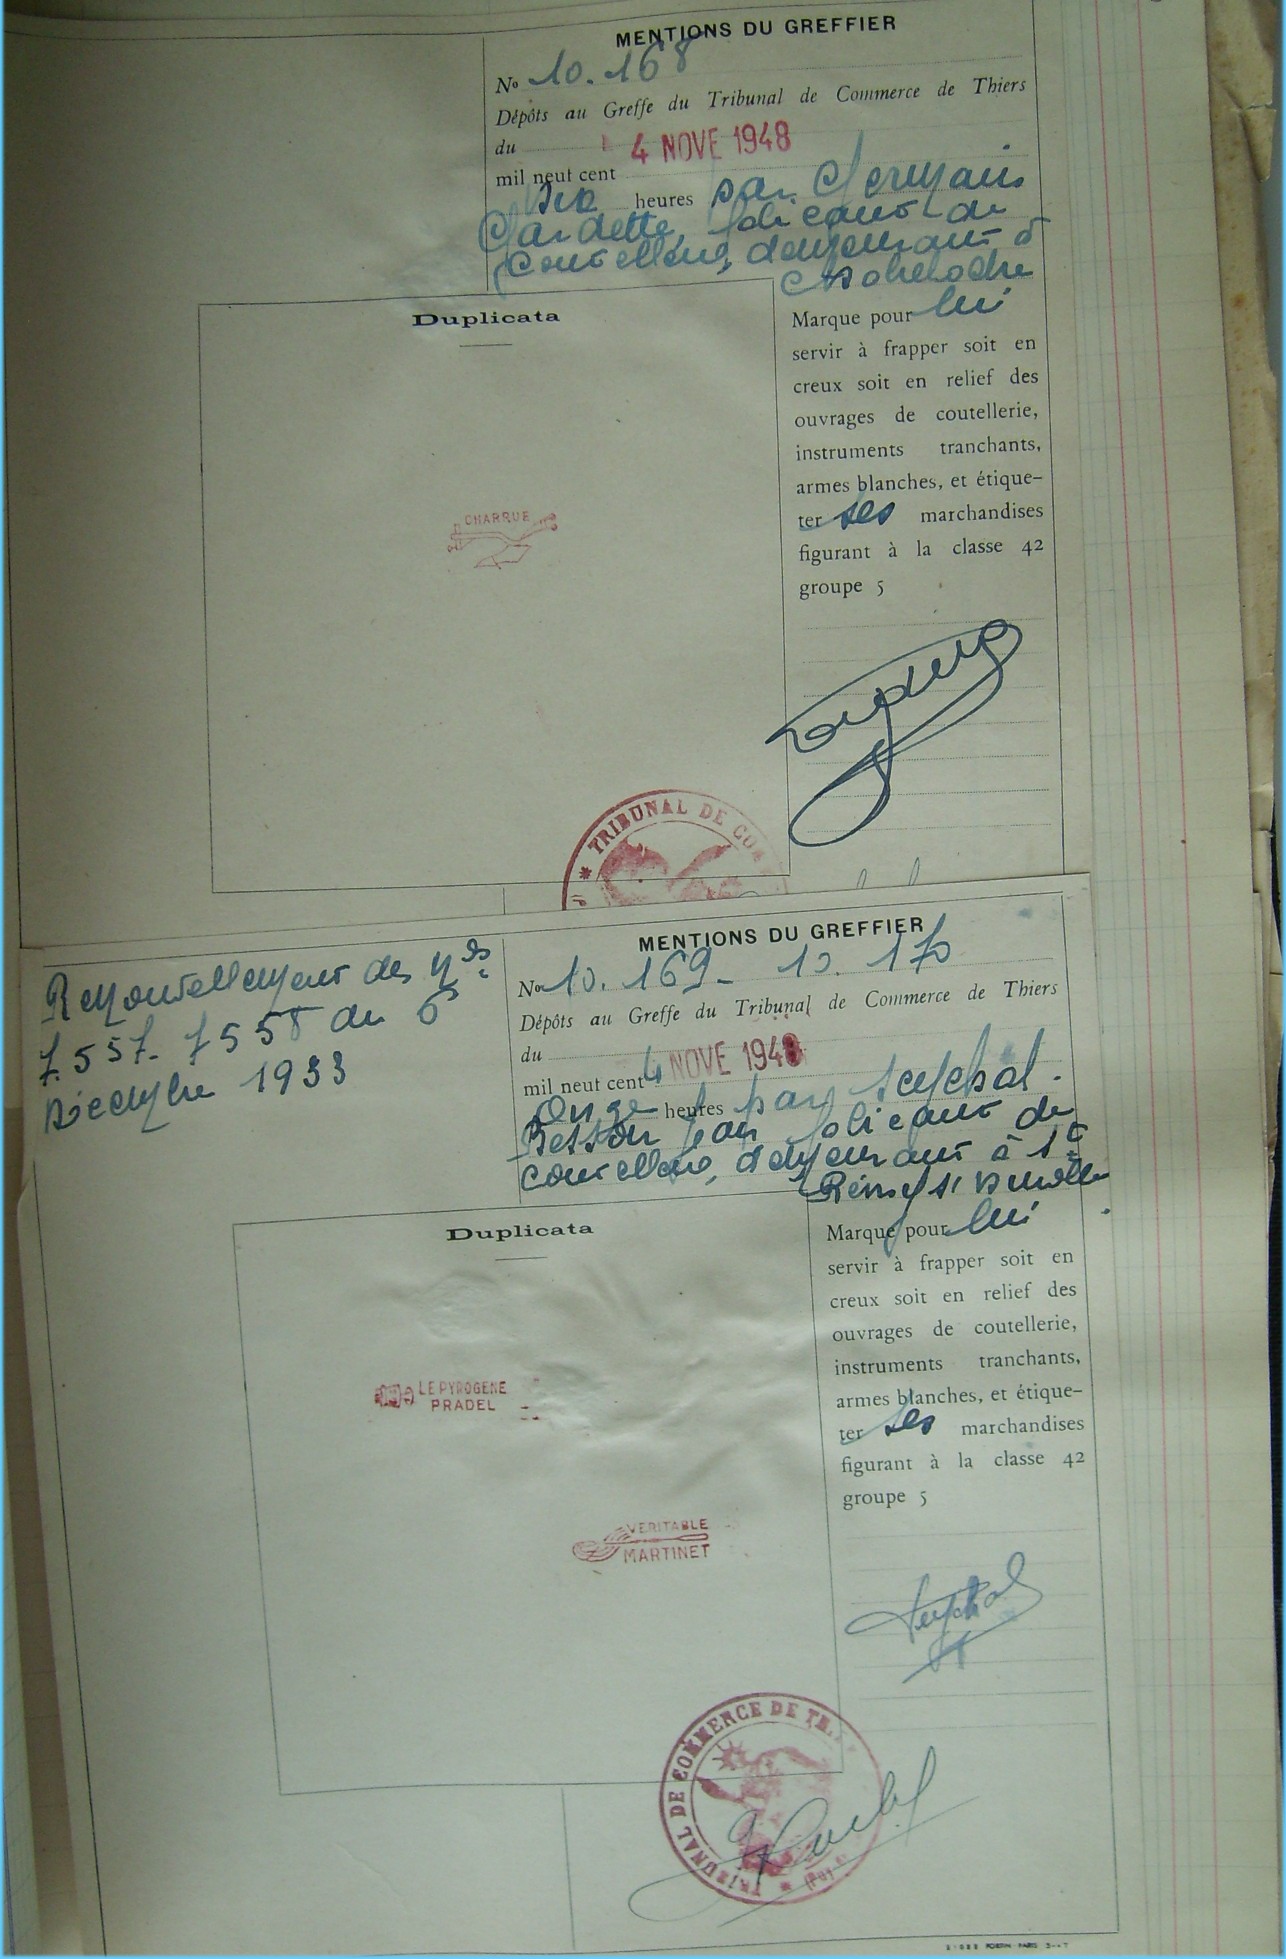 MENTIONS DU GREFFIER
No 10.168
Dépôts au Greffe du Tribunal de Commerce de Thiers
du 4 NOVE 1948
mil neuf cent
Dix heures par Germain
fabricant de
coutellerie, demeurant à
Duplicata
Marque pour lui
servir à frapper soit en
creux soit en relief des
ouvrages de coutellerie,
instruments tranchants,
armes blanches, et étique-
ter ses marchandises
figurant à la classe 42
groupe 5
CHARRUE
TRIBUNAL DE COM
MENTIONS DU GREFFIER
Renouvellement des Nos
7.557- 7558 du 6
Décembre 1933
No 10.169- 10.170
Dépôts au Greffe du Tribunal de Commerce de Thiers
du 4 NOVE 1948
mil neuf cent
Onze heures par
fabricant de
coutellerie, demeurant à St
Rémy s/ Durolle
Duplicata
Marque pour lui
servir à frapper soit en
creux soit en relief des
ouvrages de coutellerie,
instruments tranchants,
armes blanches, et étique-
ter ses marchandises
figurant à la classe 42
groupe 5
LE PYROGENE
PRADEL
VERITABLE
MARTINET
TRIBUNAL DE COMMERCE DE TH